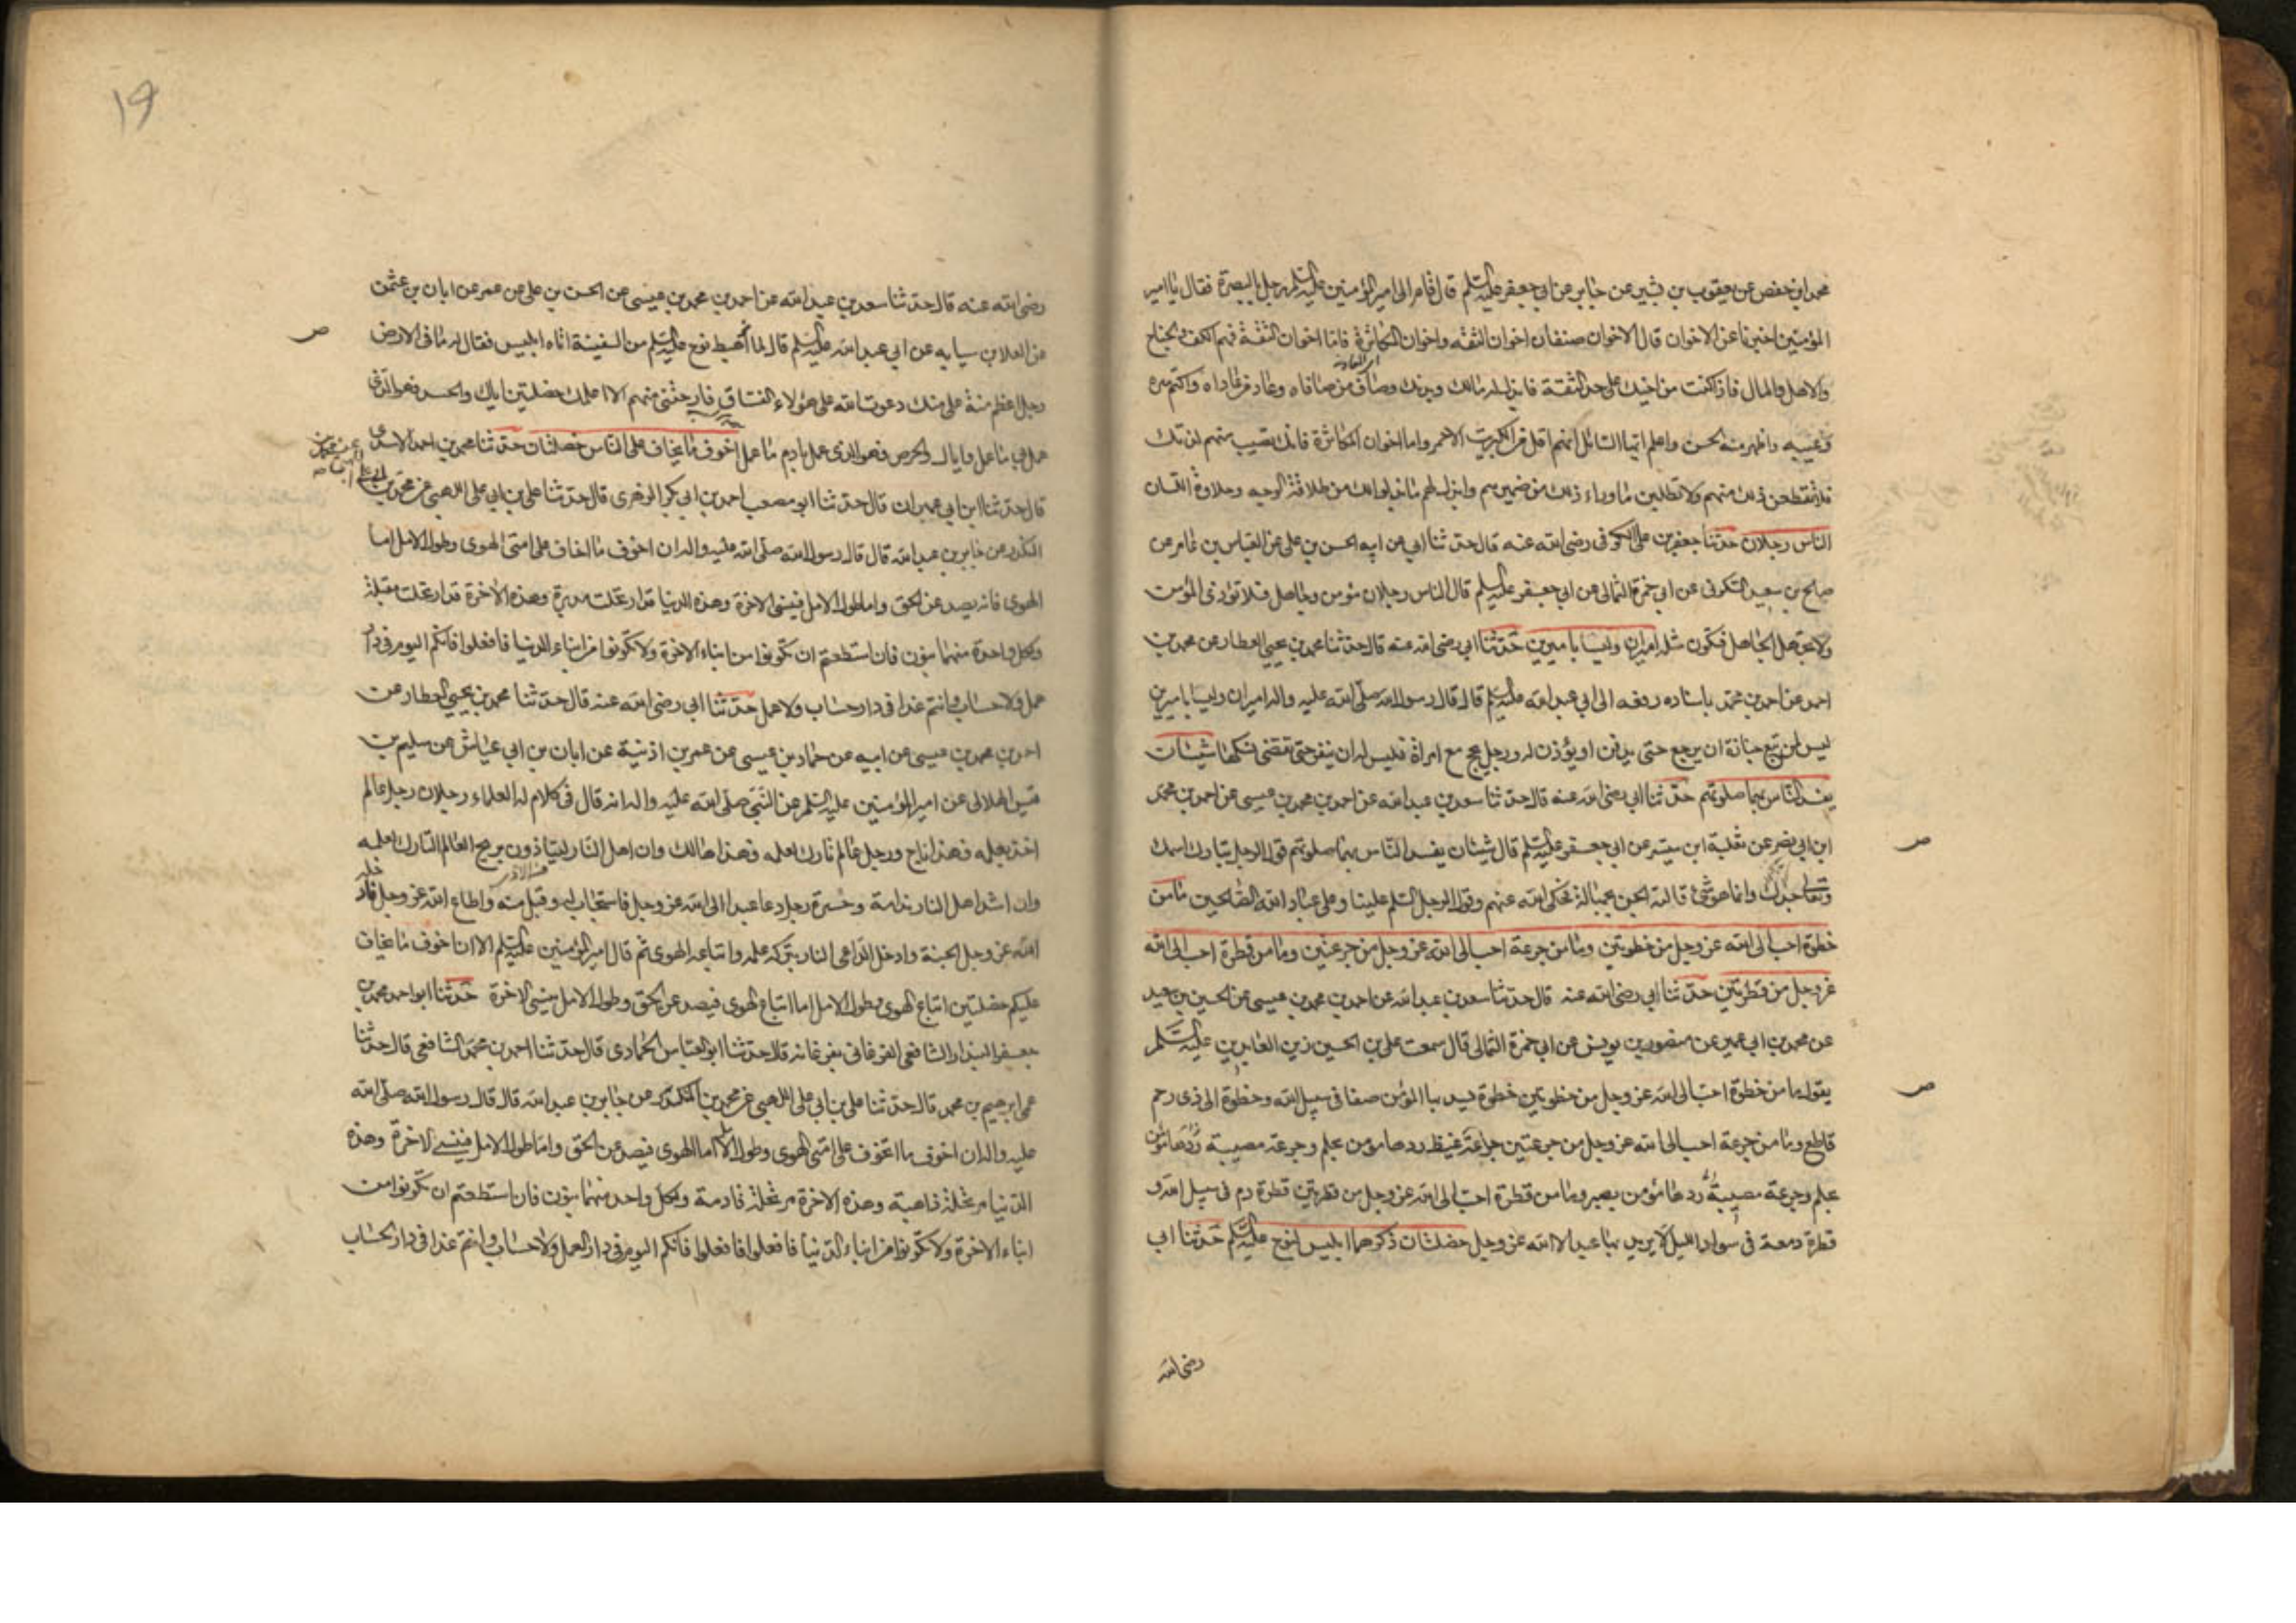 محمد ابن حفص عن يعقوب بن بشير عن جابر عن ابي جعفر عليه السلم قال قام الى امير المؤمنين عليه السلم رجل بالبصرة فقال يا امير
المؤمنين اخبرنا عن الاخوان قال الاخوان صنفان اخوان الثقه واخوان المكاثرة فاما اخوان الثقة فهم الكف والجناح
والاهل والمال فاذا كنت من اخيك على حد الثقة فابذل له مالك وبدنك وصاف من صافاه وعاد من عاداه واكتم سره
وعيبه واظهر منه الحسن واعلم ايها السائل انهم اقل من الكبريت الاحمر واما اخوان المكاثرة فانك تصيب منهم لذتك
فلا تقطعن ذلك منهم ولا تطلبن ما وراء ذلك من ضميرهم وابذل لهم ما بذلوا لك من طلاقة الوجه وحلاوة اللسان
الناس رجلان حدثنا جعفر بن على الكوفى رضى الله عنه قال حدثنا ابي عن ابيه الحسن بن على عن العباس بن عامر عن
صالح بن سعيد السكونى عن ابي حمزة الثمالى عن ابي جعفر عليه السلم قال الناس رجلان مؤمن وجاهل فلا تؤذى المؤمن
ولا تجهل الجاهل فتكون مثله اميران وليسا باميرين حدثنا ابي رضى الله عنه قال حدثنا محمد بن يحيى العطار عن محمد بن
احمد عن احمد بن محمد باسناده رفعه الى ابي عبد الله عليه السلم قال قال رسول الله صلى الله عليه واله اميران وليسا باميرين
ليس لمن تبع جنازة ان يرجع حتى يدفن او يؤذن له ورجل يحج مع امراة فليس له ان ينفر حتى تقضى نسكها شيئان
يفسد الناس بهما صلوتهم حدثنا ابي رضى الله عنه قال حدثنا سعد بن عبد الله عن احمد بن محمد بن عيسى عن احمد بن محمد
ابن ابي نصر عن ثعلبة ابن ميسر عن ابي جعفر عليه السلم قال شيئان يفسد الناس بهما صلوتهم قول الرجل تبارك اسمك
وتعالى جدك وانما هو شئ قالته الجن بجهالة فحكى الله عنهم وقول الرجل السلم علينا وعلى عباد الله الصالحين ما من
خطوة احب الى الله عز وجل من خطوتين وما من جرعة احب الى الله عز وجل من جرعتين وما من قطرة احب الى الله
عز وجل من قطرتين حدثنا ابي رضى الله عنه قال حدثنا سعد بن عبد الله عن احمد بن محمد بن عيسى عن الحسين بن سعيد
عن محمد بن ابي عمير عن منصور بن يونس عن ابي حمزة الثمالى قال سمعت على بن الحسين زين العابدين عليه السلم
يقول ما من خطوة احب الى الله عز وجل من خطوتين خطوة يسد بها المؤمن صفا فى سبيل الله وخطوة الى ذى رحم
قاطع وما من جرعة احب الى الله عز وجل من جرعتين جرعة غيظ ردها مؤمن بحلم وجرعة مصيبة ردها مؤمن
بحلم وجرعة مصيبة ردها مؤمن بصبر وما من قطرة احب الى الله عز وجل من قطرتين قطرة دم فى سبيل الله و
قطرة دمعة فى سواد الليل لا يريد بها عبد الا الله عز وجل خصلتان ذكرهما ابليس لنوح عليه السلم حدثنا ابي
رضى الله
19
رضى الله عنه قال حدثنا سعد بن عبد الله عن احمد بن محمد بن عيسى عن الحسن بن على عن عمر عن ابان بن عثمن
عن العلا بن سيابه عن ابي عبد الله عليه السلم قال لما اهبط نوح عليه السلم من السفينة اتاه ابليس فقال له ما فى الارض
رجل اعظم منة على منك دعوت الله على هؤلاء الفساق فارحتنى منهم الا اعلمك خصلتين اياك والحسد فهو الذى
عمل بي ما عمل واياك والحرص فهو الذى عمل بادم ما عمل اخوف ما يخاف على الناس خصلتان حدثنا محمد بن احمد الاسدى
قال حدثنا ابن ابي عمران قال حدثنا ابو مصعب احمد بن ابي بكر الزهرى قال حدثنا على بن ابي على اللهبى عن محمد بن
المنكدر عن جابر بن عبد الله قال قال رسول الله صلى الله عليه واله ان اخوف ما اخاف على امتى الهوى وطول الامل اما
الهوى فانه يصد عن الحق واما طول الامل فينسى الاخرة وهذه الدنيا قد ارتحلت مدبرة وهذه الاخرة قد ارتحلت مقبلة
ولكل واحدة منهما بنون فان استطعتم ان تكونوا من ابناء الاخرة ولا تكونوا من ابناء الدنيا فافعلوا فانكم اليوم فى دار
عمل ولا حساب وانتم غدا فى دار حساب ولا عمل حدثنا ابي رضى الله عنه قال حدثنا محمد بن يحيى العطار عن
احمد بن محمد بن عيسى عن ابيه عن حماد بن عيسى عن عمر بن اذنية عن ابان بن ابي عياش عن سليم بن
قيس الهلالى عن امير المؤمنين عليه السلم عن النبى صلى الله عليه واله انه قال فى كلام له العلماء رجلان رجل عالم
اخذ بعلمه فهذا ناج ورجل عالم تارك لعلمه فهذا هالك وان اهل النار ليتاذون بريح العالم التارك لعلمه
وان اشد اهل النار ندامة وحسرة رجل دعا عبدا الى الله عز وجل فاستجاب له وقبل منه واطاع الله عز وجل فادخله
الله عز وجل الجنة وادخل الداعى النار بتركه علمه واتباعه الهوى ثم قال امير المؤمنين عليه السلم الا ان اخوف ما يخاف
عليكم خصلتين اتباع الهوى وطول الامل اما اتباع الهوى فيصد عن الحق وطول الامل ينسى الاخرة حدثنا ابو احمد محمد بن
جعفر البندار الشافعى الفرغانى بفرغانه قال حدثنا ابو العباس الحمادى قال حدثنا احمد بن محمد الشافعى قال حدثنا
عمى ابرهيم بن محمد قال حدثنا على بن ابي على اللهبى عن محمد بن المنكدر عن جابر بن عبد الله قال قال رسول الله صلى الله
عليه واله ان اخوف ما اتخوف على امتى الهوى وطول الامل اما الهوى فيصد عن الحق واما طول الامل فينسى الاخرة وهذه
الدنيا مرتحلة ذاهبة وهذه الاخرة مرتحلة قادمة ولكل واحد منهما بنون فان استطعتم ان تكونوا من
ابناء الاخرة ولا تكونوا من ابناء الدنيا فافعلوا فافعلوا فانكم اليوم فى دار العمل ولا حساب وانتم غدا فى دار الحساب